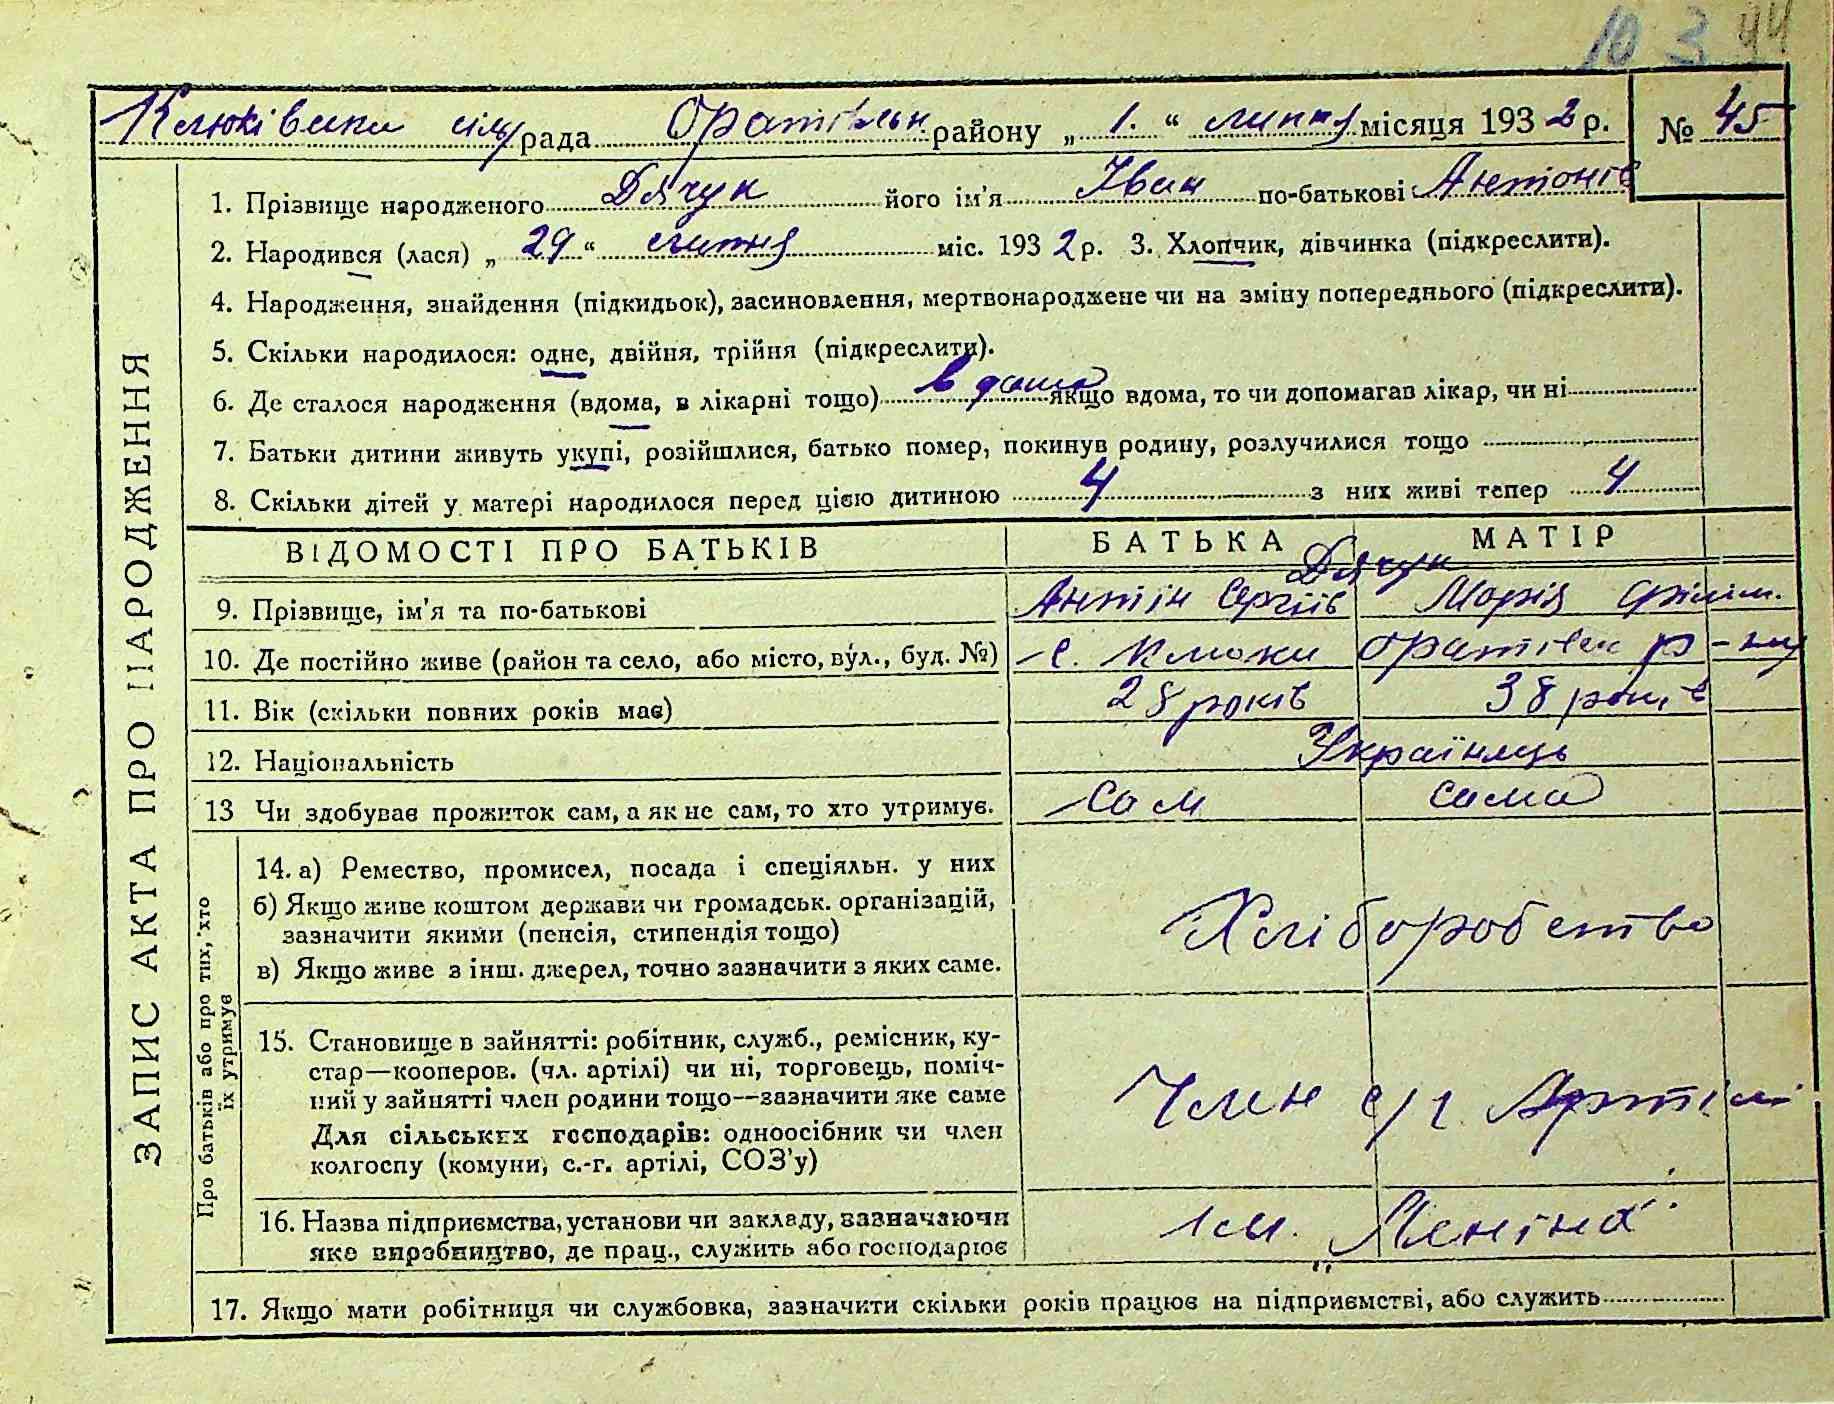 10 3 44
Клюківська сіль рада Оратівськ. району „ 1. “ липня місяця 1932 р. № 45
ЗАПИС АКТА ПРО НАРОДЖЕННЯ
1. Прізвище народженого Дячук його ім'я Іван по-батькові Антонів
2. Народився (лася) „ 29 “ міс. 1932 р. 3. Хлопчик, дівчинка (підкреслити).
4. Народження, знайдення (підкидьок), засиновлення, мертвонароджене чи на зміну попереднього (підкреслити).
5. Скільки народилося: одне, двійня, трійня (підкреслити).
6. Де сталося народження (вдома, в лікарні тощо) вдома якщо вдома, то чи допомагав лікар, чи ні
7. Батьки дитини живуть укупі, розійшлися, батько помер, покинув родину, розлучилися тощо
8. Скільки дітей у матері народилося перед цією дитиною 4 з них живі тепер 4
ВІДОМОСТІ ПРО БАТЬКІВ БАТЬКА МАТІР
Дячук
9. Прізвище, ім'я та по-батькові Антін Сергіїв Марія Філім.
10. Де постійно живе (район та село, або місто, вул., буд. №) с. Клюки Оратівськ р-ну
11. Вік (скільки повних років має) 28 років 38 років
12. Національність Українець
13 Чи здобуває прожиток сам, а як не сам, то хто утримує. Сам сама
Про батьків або про тих, хто їх утримує
14. а) Ремество, промисел, посада і спеціяльн. у них
б) Якщо живе коштом держави чи громадськ. організацій,
зазначити якими (пенсія, стипендія тощо)
в) Якщо живе з інш. джерел, точно зазначити з яких саме.
Хліборобство
15. Становище в зайнятті: робітник, служб., ремісник, ку-
стар—кооперов. (чл. артілі) чи ні, торговець, поміч-
ний у зайнятті член родини тощо—зазначити яке саме
Для сільських господарів: одноосібник чи член
колгоспу (комуни, с.-г. артілі, СОЗ'у)
Член с/г. Артілі
16. Назва підприємства, установи чи закладу, зазначаючи
яке виробництво, де прац., служить або господарює
ім. „Леніна“
17. Якщо мати робітниця чи службовка, зазначити скільки років працює на підприємстві, або служить